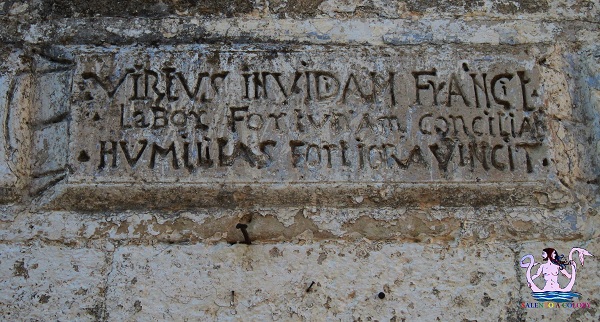 VIRTVS INVIDAM FRANGI
LaBOR FORTUNAM CONCILIA
HVMILITAS FORTIORA VINCIT.